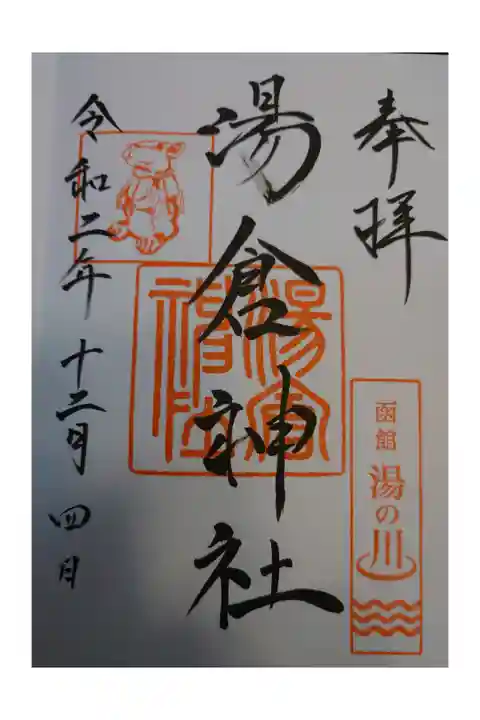 奉拝
函館 湯の川
湯倉神社
令和二年 十二月 四日